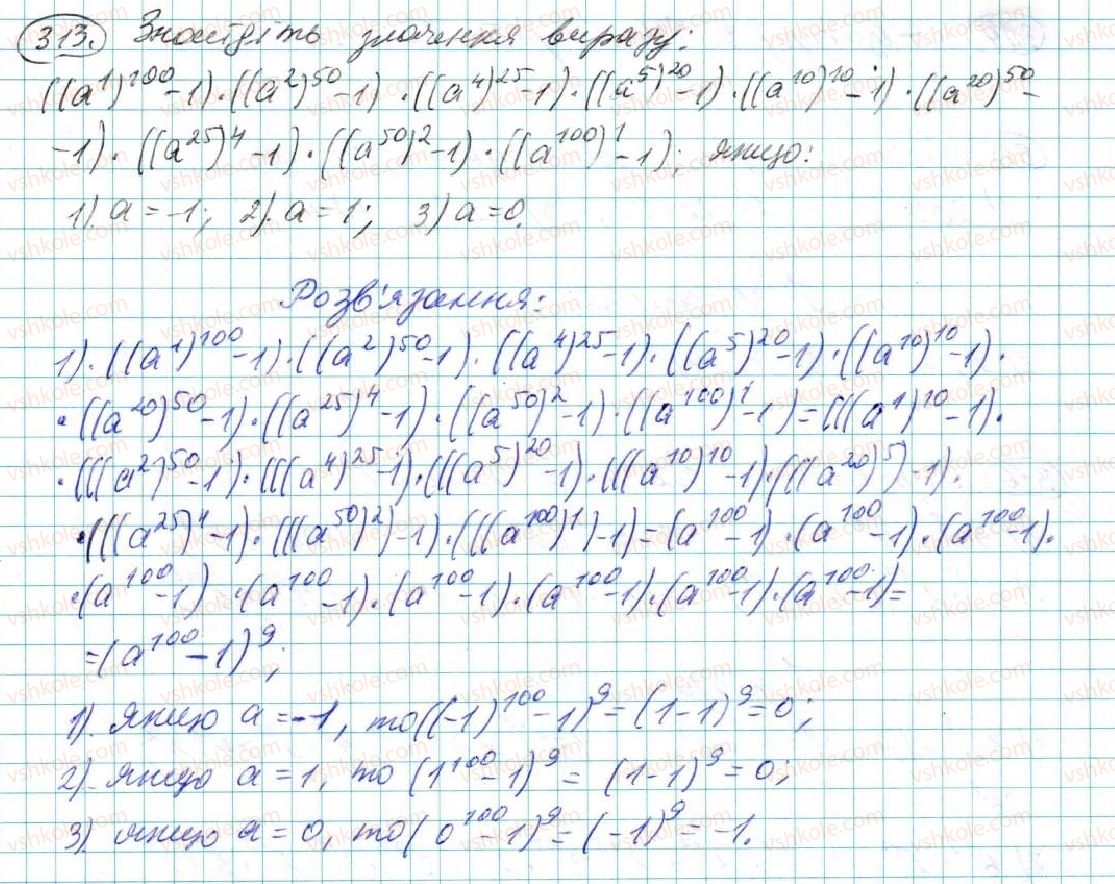 313. Знайдіть значення виразу:
((a^1)^100-1)·((a^2)^50-1)·((a^4)^25-1)·((a^5)^20-1)·((a^10)^10-1)·((a^20)^50-
-1)·((a^25)^4-1)·((a^50)^2-1)·((a^100)^1-1); якщо:
1). a=-1; 2). a=1; 3) a=0.
Розв'язання:
1).((a^1)^100-1)·((a^2)^50-1)·((a^4)^25-1)·((a^5)^20-1)·((a^10)^10-1)·
·((a^20)^50-1)·((a^25)^4-1)·((a^50)^2-1)·((a^100)^1-1)=(((a^1)^10-1)·
·(((a^2)^50-1)·(((a^4)^25-1)·(((a^5)^20-1)·(((a^10)^10-1)·(((a^20)^5)-1)·
·(((a^25)^4-1)·(((a^50)^2)-1)·(((a^100)^1)-1)=(a^100-1)·(a^100-1)·(a^100-1)·
·(a^100-1)·(a^100-1)·(a^100-1)·(a^100-1)·(a^100-1)·(a^100-1)=
=(a^100-1)^9;
1). якщо a=-1, то((-1)^100-1)^9=(1-1)^9=0;
2). якщо a=1, то (1^100-1)^9=(1-1)^9=0;
3). якщо a=0, то(0^100-1)^9=(-1)^9=-1.
vshkole.com